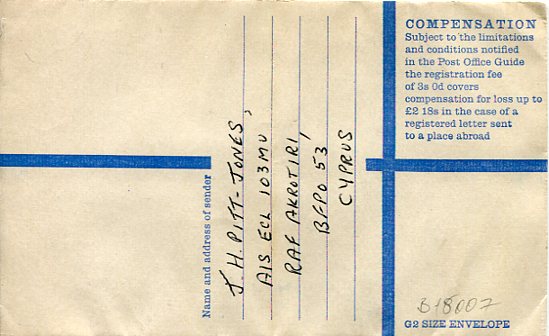 COMPENSATION
Subject to the limitations
and conditions notified
in the Post Office Guide
the registration fee
of 3s 0d covers
compensation for loss up to
£2 18s in the case of a
registered letter sent
to a place abroad
Name and address of sender
J. H. PITT-JONES,
AIS ECL 103 MU
RAF AKROTIRI,
BFPO 53
CYPRUS
B-18007
G2 SIZE ENVELOPE